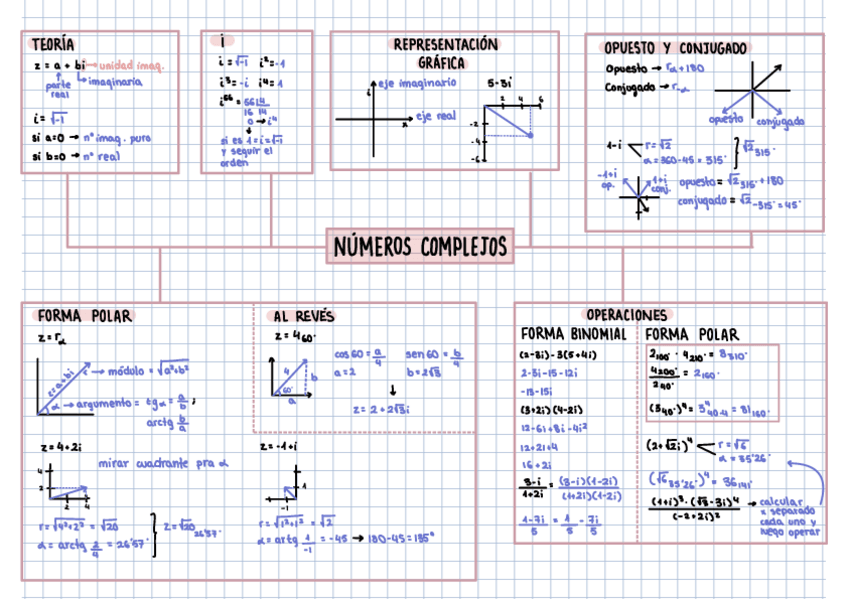 TEORÍA
z = a + bi → unidad imag.
parte real
imaginaria
i = √-1
si a=0 → nº imag. puro
si b=0 → nº real
i
i = √-1 i² = -1
i³ = -i i⁴ = 1
0 → i⁴
si es 1 = i = √-1
y seguir el
orden
REPRESENTACIÓN
GRÁFICA
eje imaginario
i
eje real
5-3i
2 4 6
-2
-4
-6
OPUESTO Y CONJUGADO
Opuesto → rα+180
Conjugado → r-α
opuesto
conjugado
1-i
r = √2
α = 360-45 = 315°
√2 315°
-1+i
op.
1+i
conj.
opuesto = √2 315° +180
conjugado = √2 -315° = 45°
NÚMEROS COMPLEJOS
FORMA POLAR
z = rα
z = a+bi
→ módulo = √a²+b²
α → argumento = tgα = a/b ;
arctg b/a
z = 4+2i
mirar cuadrante pra α
4
2
2 4
r = √4²+2² = √20
α = arctg 2/4 = 26'57°
z = √20 26'57°
z = -1+i
1
-1
r = √1²+1² = √2
α = artg 1/-1 = -45 → 180-45 = 135°
AL REVÉS
z = 4 60°
4
60°
a
b
cos60 = a/4
sen60 = b/4
a = 2
b = 2√3
z = 2 + 2√3i
OPERACIONES
FORMA BINOMIAL
(2-3i) - 3(5+4i)
2-3i-15-12i
-13-15i
(3+2i)(4-2i)
12-6i+8i-4i²
12+2i+4
16+2i
3-i/1+2i = (3-i)(1-2i)/(1+2i)(1-2i)
1-7i/5 = 1/5 - 7i/5
FORMA POLAR
2 100° · 4 210° = 8 310°
4 200°/2 40° = 2 160°
(3 40°)⁴ = 3⁴ 40·4 = 81 160°
(2+√2i)⁴
r = √6
α = 35'26°
(√6 35'26°)⁴ = 36 141°
(1+i)³ · (√3-3i)⁴/(-2+2i)²
→ calcular
x separado
cada uno y
luego operar